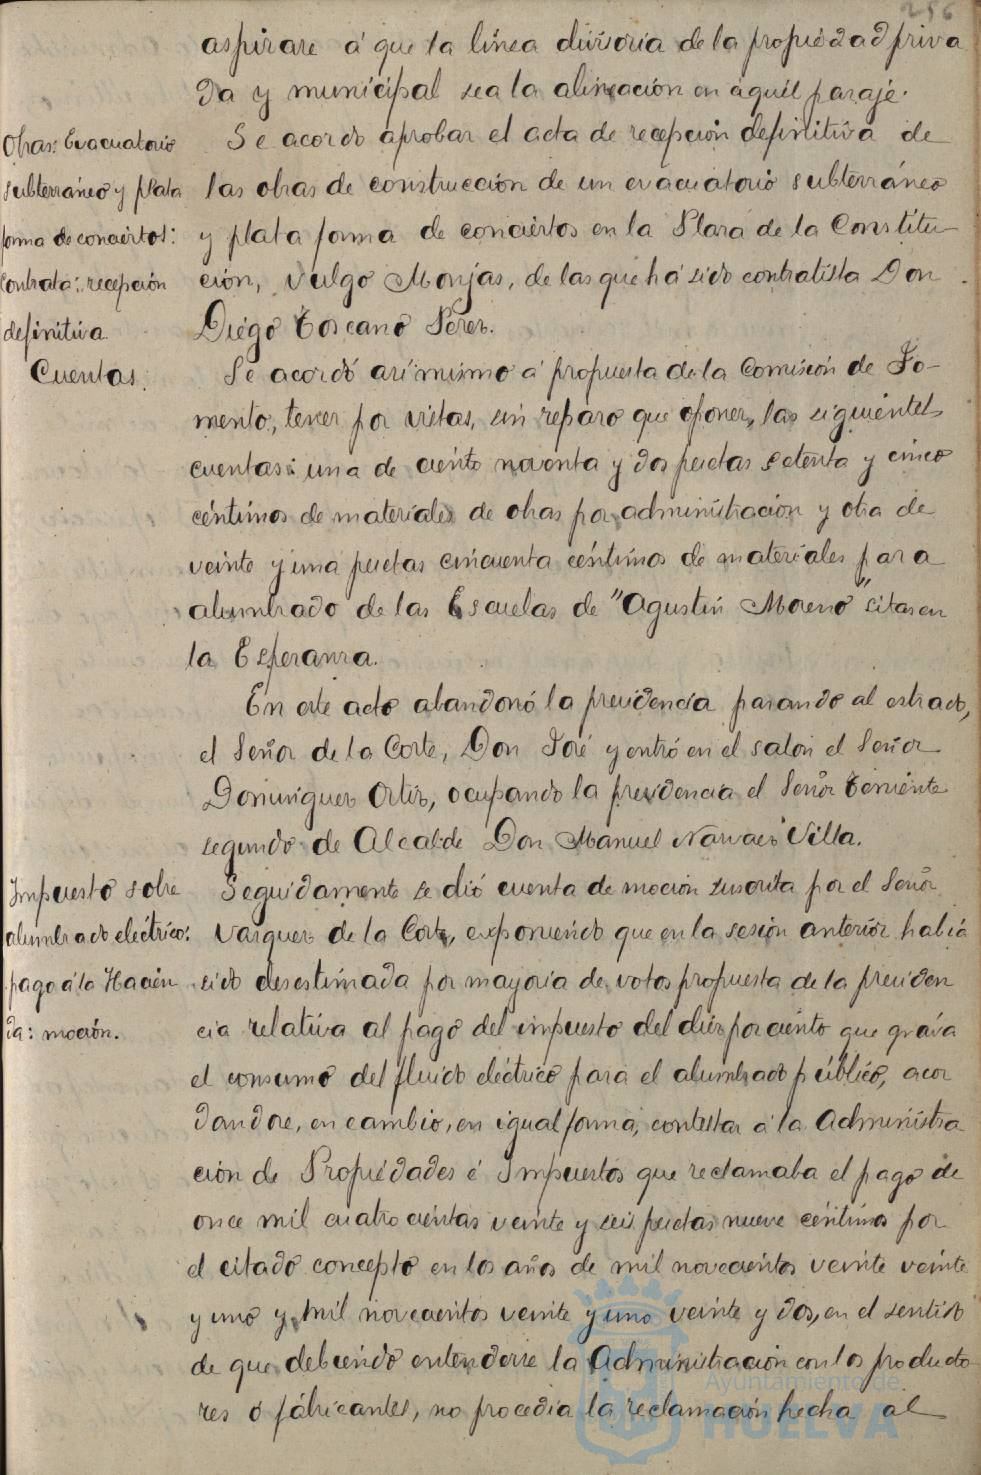 256
aspirare á que la línea divisoria de la propiedad priva
da y municipal sea la alineación en aquél paraje.
Obras: Evacuatorio
subterráneo y plata
forma de conciertos:
Contrata: recepción
definitiva.
Se acordó aprobar el acta de recepción definitiva de
las obras de construcción de un evacuatorio subterráneo
y plataforma de conciertos en la Plaza de la Constitu-
ción, vulgo Monjas, de las que há sido contratista Don
Diego Toscano Pérez.
Cuentas.
Se acordó asímismo á propuesta de la Comisión de Fo-
mento, tener por vistas, sin reparo que oponer, las siguientes
cuentas: una de ciento noventa y dos pesetas setenta y cinco
céntimos de materiales de obras por administración y otra de
veinte y una pesetas cincuenta céntimos de materiales para
alumbrado de las Escuelas de "Agustín Moreno" sitas en
la Esperanza.
En este acto abandonó la presidencia pasando al estrado,
el Señor de la Corte, Don José y entró en el salón el Señor
Domínguez Ortiz, ocupando la presidencia el Señor Teniente
segundo de Alcalde Don Manuel Narvaez Villa.
Impuesto sobre
alumbrado eléctrico:
pago á la Hacien
da: moción.
Seguidamente se dió cuenta de moción suscrita por el Señor
Vazquez de la Corte, exponiendo que en la sesión anterior había
sido desestimada por mayoría de votos propuesta de la presiden
cia relativa al pago del impuesto del diez por ciento que gráva
el consumo del fluido eléctrico para el alumbrado público, acor
dandose, en cambio, en igual forma, contestar á la Administra
ción de Propiedades é Impuestos que reclamaba el pago de
once mil cuatrocientas veinte y seis pesetas nueve céntimos por
el citado concepto en los años de mil novecientos veinte veinte
y uno y mil novecientos veinte y uno veinte y dos, en el sentido
de que debiendo entenderse la Administración con los producto
res ó fábricantes, no procedía la reclamación hecha al
Ayuntamiento de
HUELVA